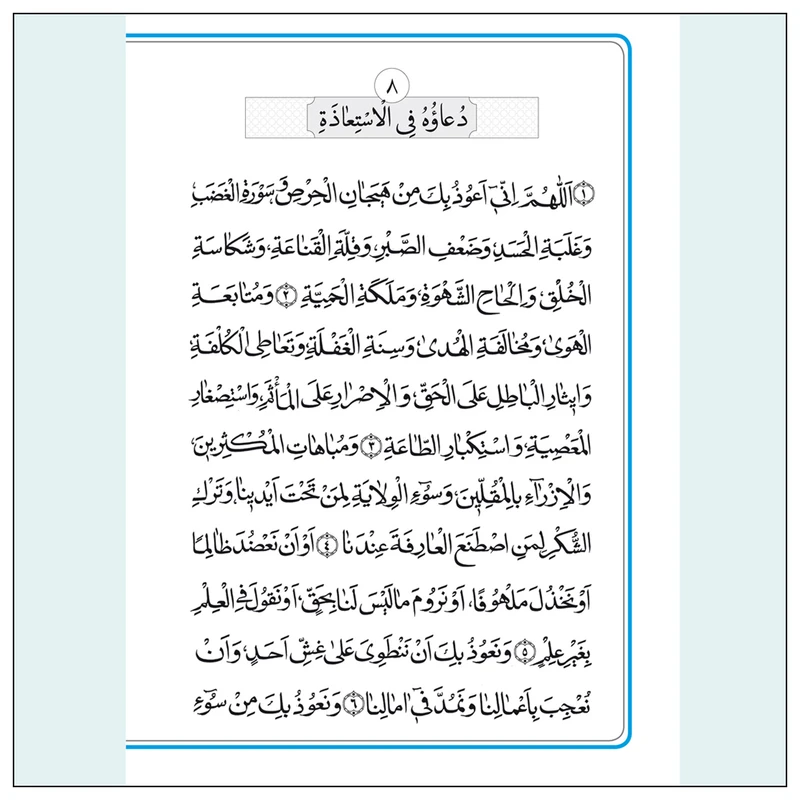 ٨
دُعاؤُهُ فِی الْاِسْتِعاذَةِ
﴿١﴾ اَللّٰهُمَّ اِنّىٖٓ اَعُوذُ بِكَ مِنْ هَيَجَانِ الْحِرْصِ وَ سَوْرَةِ الْغَضَبِ
وَ غَلَبَةِ الْحَسَدِ وَ ضَعْفِ الصَّبْرِ وَ قِلَّةِ الْقَنَاعَةِ، وَ شَكَاسَةِ
الْخُلْقِ، وَ اِلْحَاحِ الشَّهْوَةِ، وَ مَلَكَةِ الْحَمِيَّةِ ﴿٢﴾ وَ مُتَابَعَةِ
الْهَوىٰ، وَ مُخَالَفَةِ الْهُدىٰ، وَ سِنَةِ الْغَفْلَةِ، وَ تَعَاطِی الْكُلْفَةِ،
وَ اٖيثَارِ الْبَاطِلِ عَلَى الْحَقِّ، وَ الْاِصْرَارِ عَلَى الْمَأْثَمِ، وَ اسْتِصْغَارِ
الْمَعْصِيَةِ، وَ اسْتِكْبَارِ الطَّاعَةِ ﴿٣﴾ وَ مُبَاهَاتِ الْمُكْثِرٖينَ،
وَ الْاِزْرَاءِ بِالْمُقِلّٖينَ، وَ سُوٓءِ الْوِلَايَةِ لِمَنْ تَحْتَ اَيْدٖينَا، وَ تَرْكِ
الشُّكْرِ لِمَنِ اصْطَنَعَ الْعَارِفَةَ عِنْدَنَا ﴿٤﴾ اَوْ اَنْ نَعْضُدَ ظَالِمًا
اَوْ نَخْذُلَ مَلْهُوفًا، اَوْ نَرُومَ مَا لَيْسَ لَنَا بِحَقٍّ، اَوْ نَقُولَ فِی الْعِلْمِ
بِغَيْرِ عِلْمٍ ﴿٥﴾ وَ نَعُوذُ بِكَ اَنْ نَنْطَوِیَ عَلىٰ غِشِّ اَحَدٍ، وَ اَنْ
نُعْجِبَ بِاَعْمَالِنَا وَ نَمُدَّ فٖٓی اٰمَالِنَا ﴿٦﴾ وَ نَعُوذُ بِكَ مِنْ سُوٓءِ